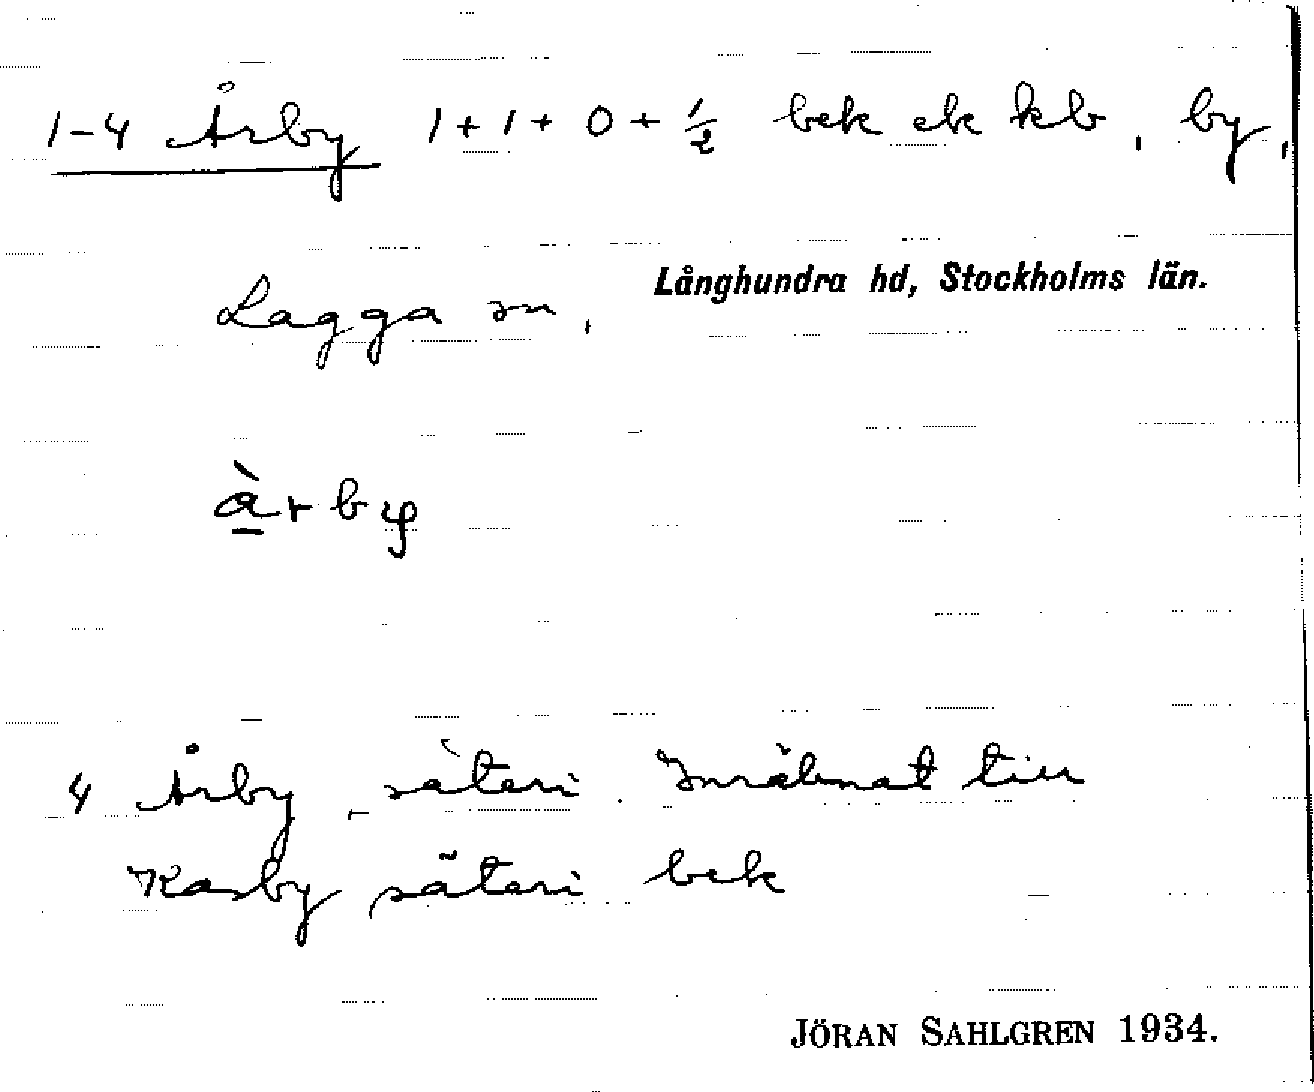 1-4 Årby 1 + 1 + 0 + ½ bek ek kb, by,
Lagga sn,
Långhundra hd, Stockholms län.
àrby
4 Årby, säteri. Inräknat till
Kasby säteri bek
JÖRAN SAHLGREN 1934.